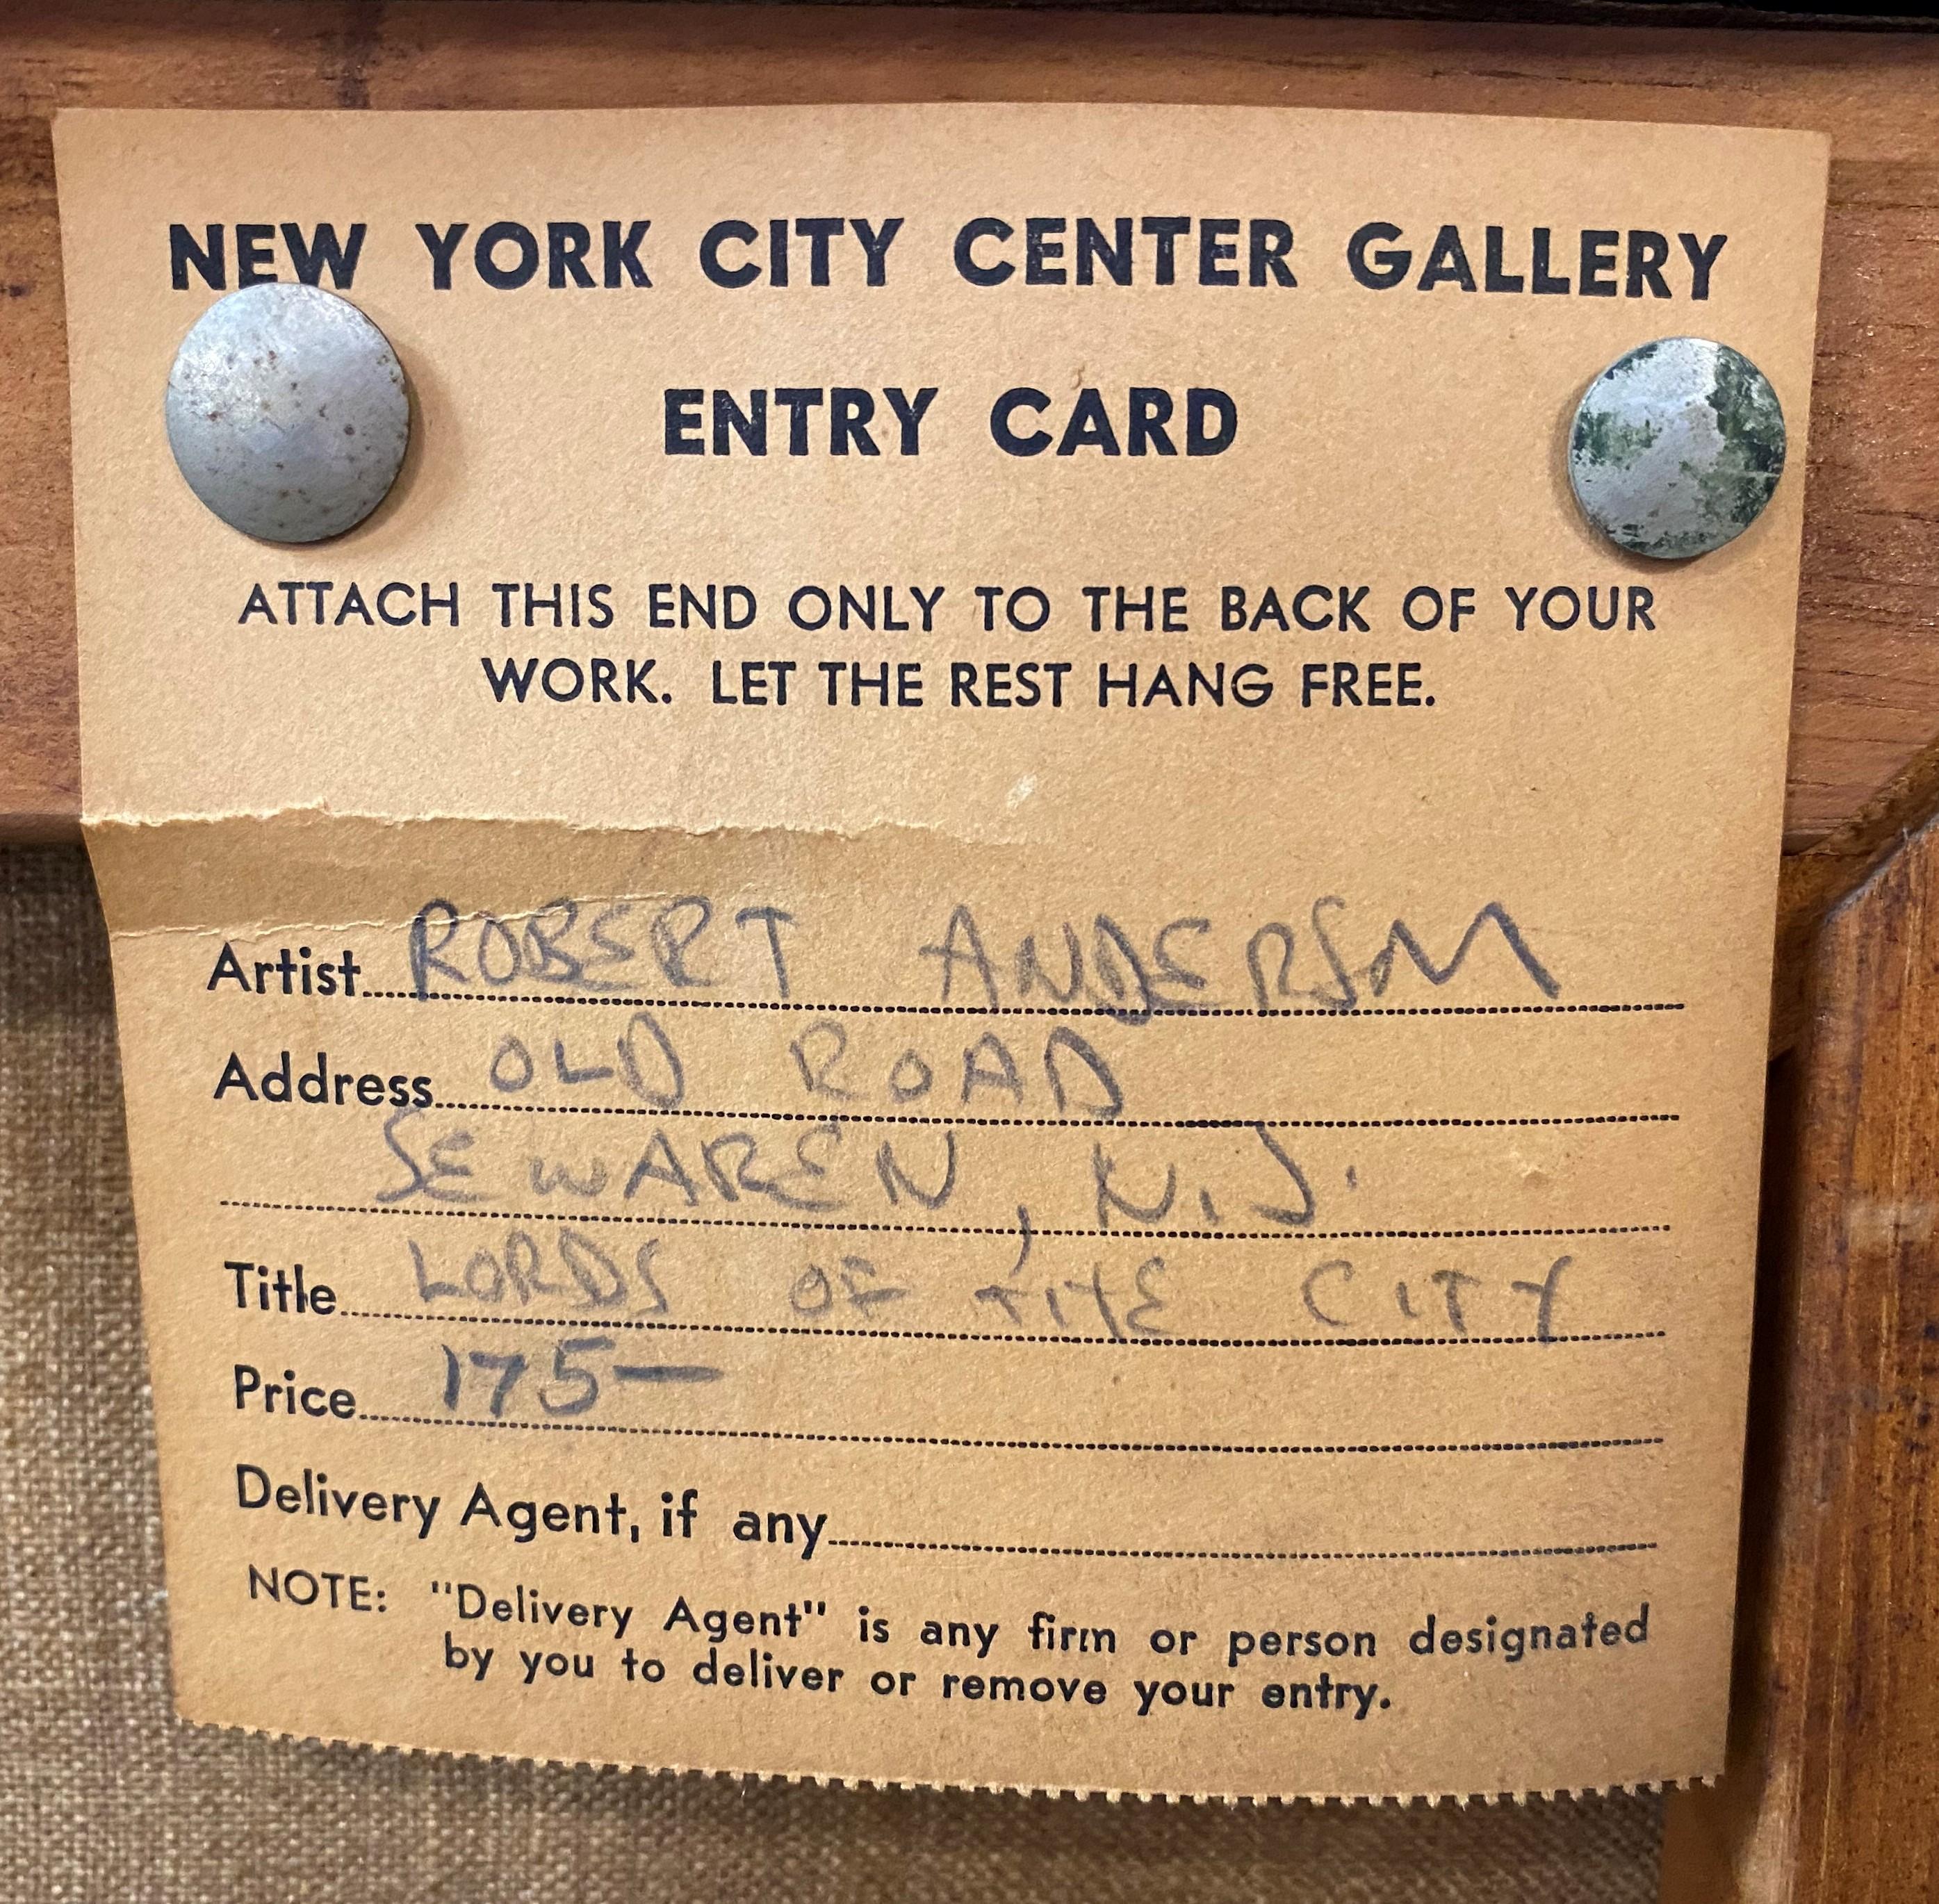 NEW YORK CITY CENTER GALLERY
ENTRY CARD
ATTACH THIS END ONLY TO THE BACK OF YOUR
WORK. LET THE REST HANG FREE.
Artist ROBERT ANDERSON
Address OLD ROAD
SEWAREN, N.J.
Title LORDS OF THE CITY
Price 175—
Delivery Agent, if any
NOTE: "Delivery Agent" is any firm or person designated
by you to deliver or remove your entry.